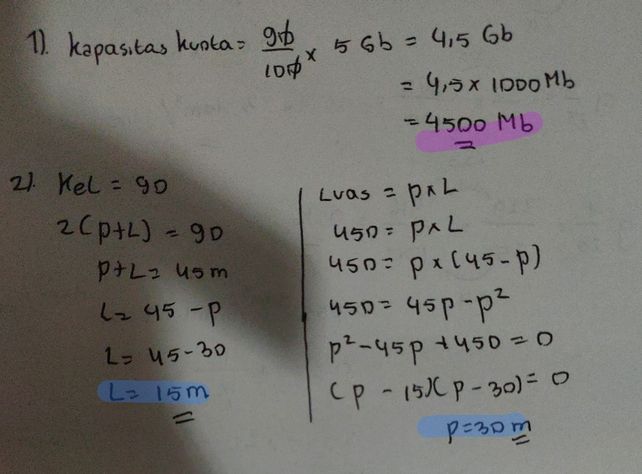 1). Kapasitas kuota = 90/100 × 5 Gb = 4,5 Gb
= 4,5 × 1000 Mb
= 4500 Mb
2). Kel = 90
2(p+L) = 90
p+L = 45m
L = 45 - p
L = 45-30
L = 15m
Luas = p×L
450 = p×L
450 = p×(45-p)
450 = 45p-p²
p²-45p+450 = 0
(p - 15)(p - 30) = 0
p=30 m